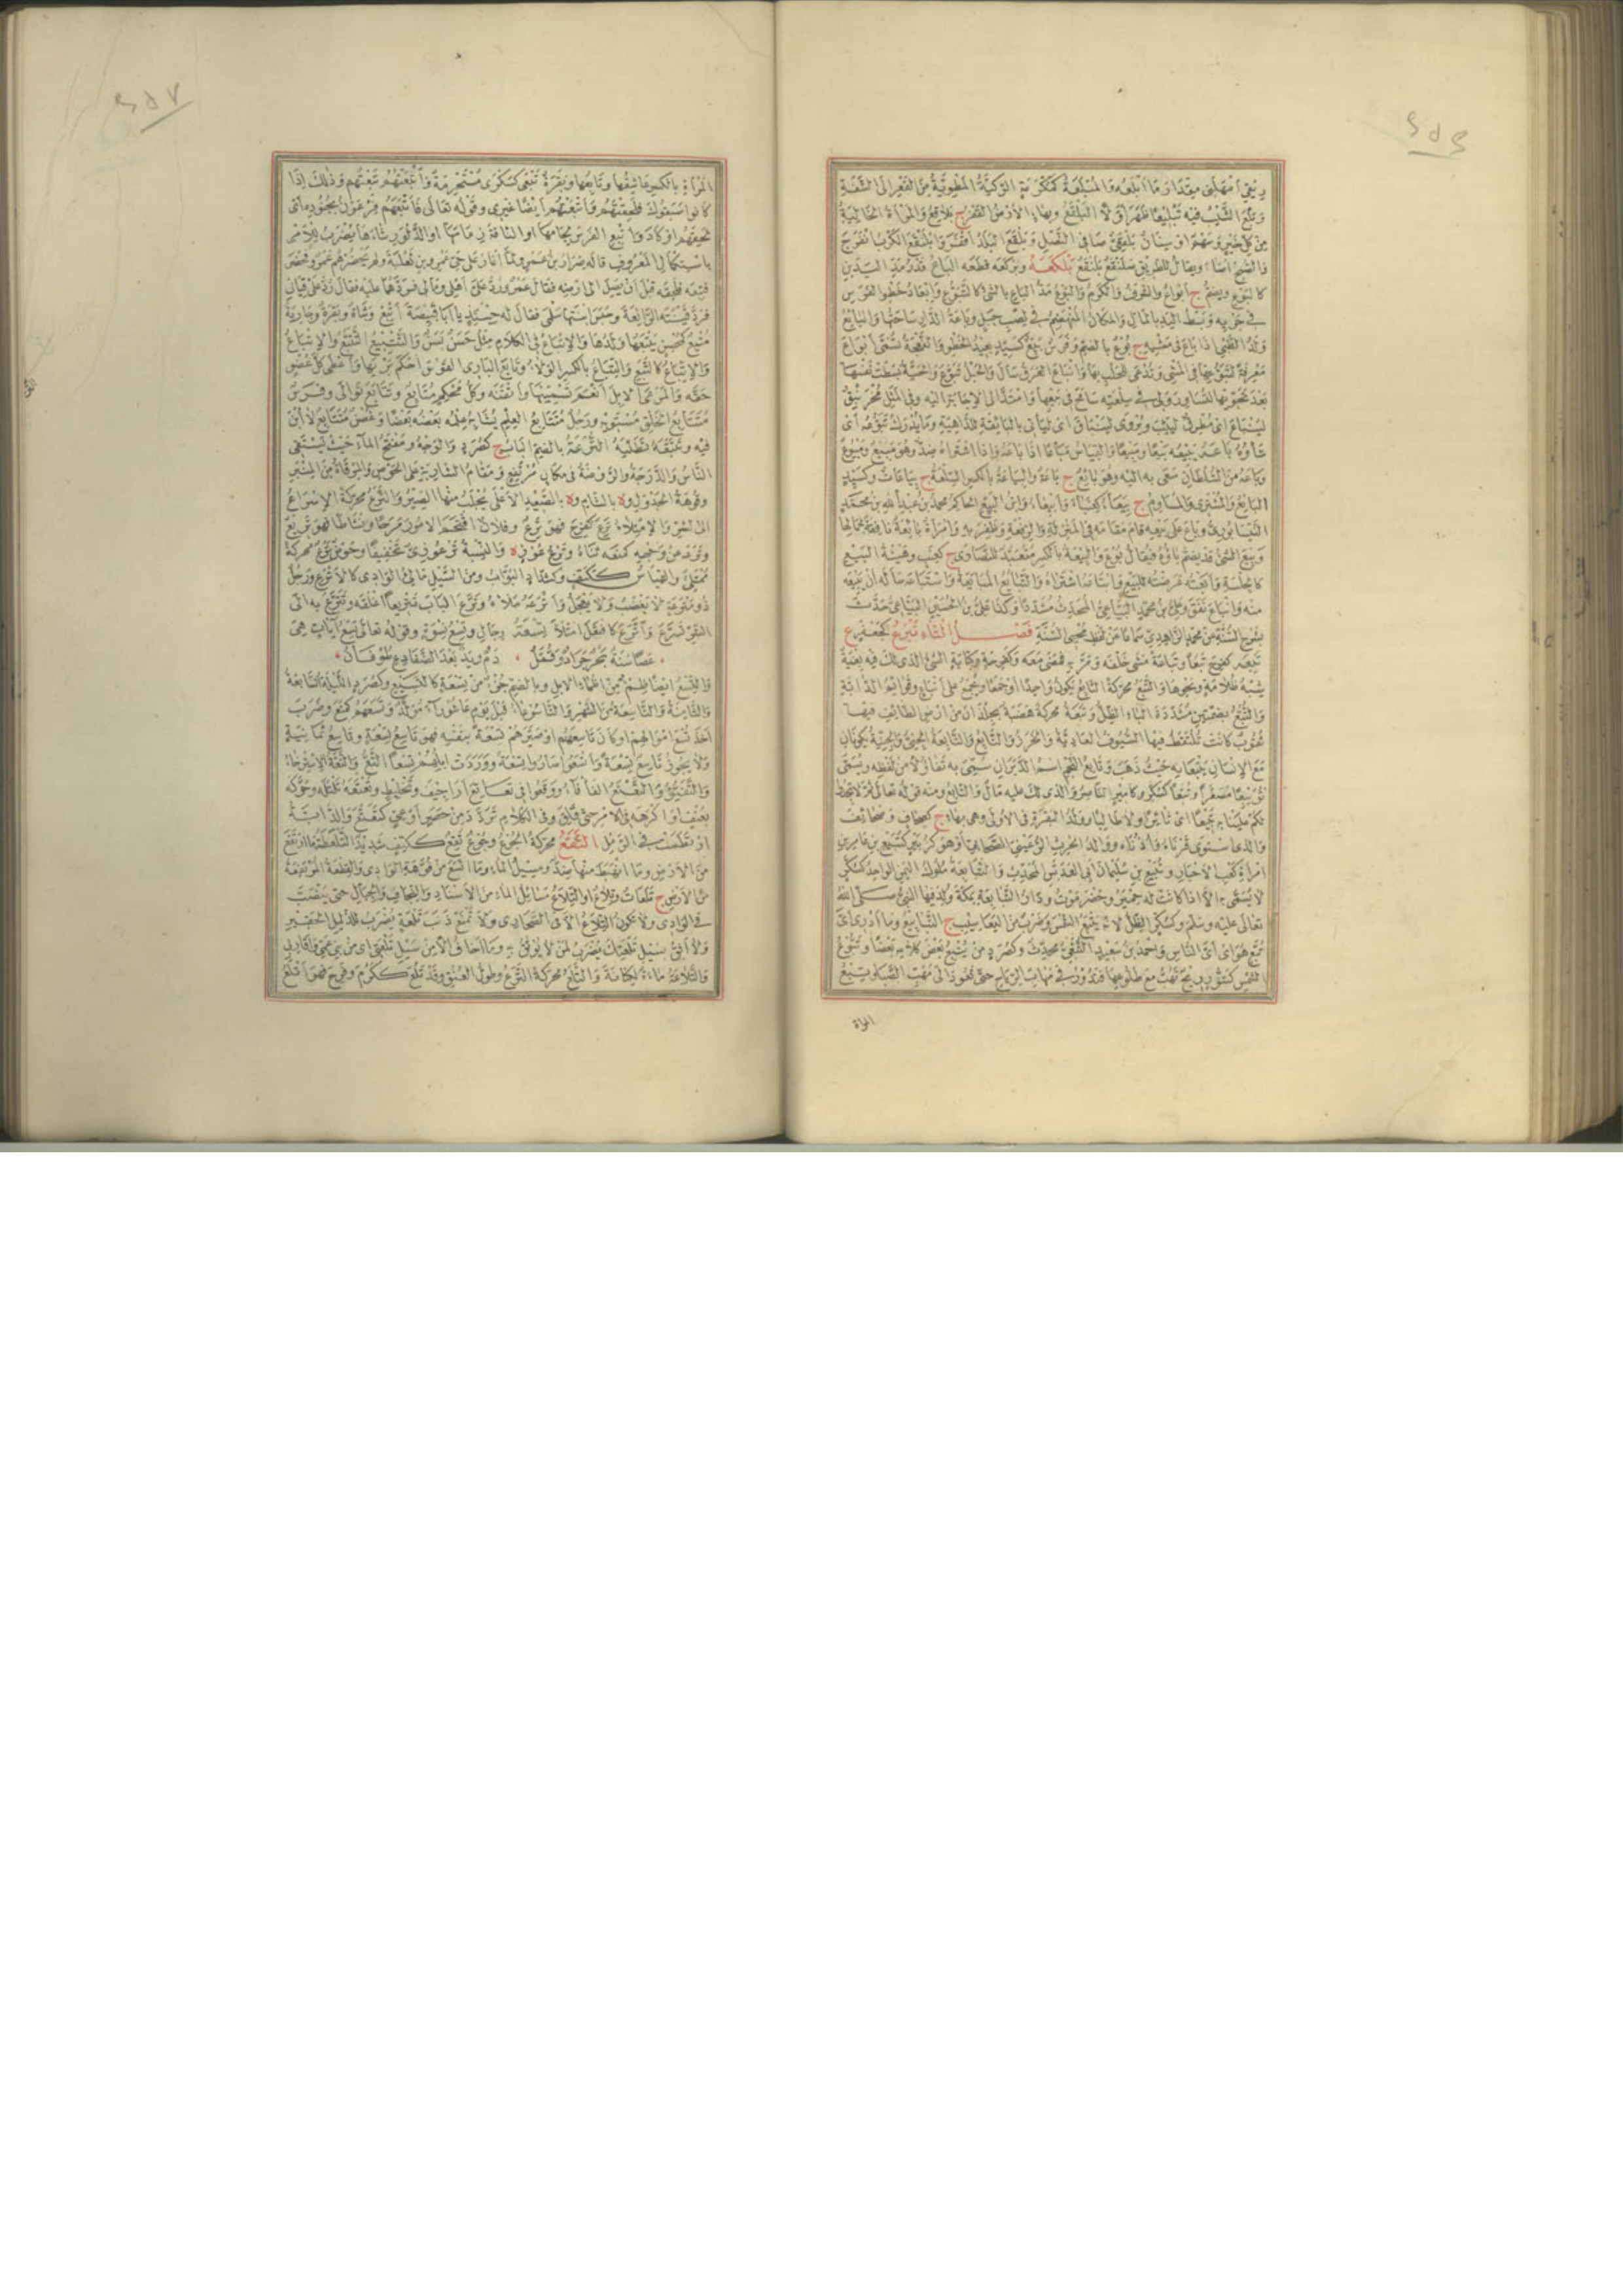 وبلع الشيب فيه تبليعا ظهر
والشيخ أساء ويقال للطريق صلنقع بلنقع بلكعه وبركعه قطعه الباع قدر مد اليدين
كالبوع ويضم ج أبواع والشرف والكرم والبوع مد الباع بالشئ كالتبوع وإبعاد خطو الفرس
في جريه وبسط اليد بالمال والمكان المنهضم في لصب جبل وباعة الدار ساحتها والبائع
ولد الظبي إذا باع في مشيه ج بوع بالضم وفرس بيع كسيد بعيد الخطو والنعجة تسمى أبواع
معرفة لتبوعها في المشي وتدعى للحلب بها وانباع العرق سال والحبل تبوع والحية بسطت نفسها
لينباع أي مطرق ليثب ويروى لينباق أي ليأتي بالبائقة للداهية وما يدرك تبوعه أي
شأوه باعه يبيعه بيعا ومبيعا والقياس مباعا إذا باعه وإذا اشتراه ضد وهو مبيع ومبيوع
وباعه من السلطان سعى به إليه وهو بائع ج باعة والبياعة بالكسر السلعة ج بياعات وكسيد
البائع والمشتري والمساوم ج بيعاء كعنباء وأبيعاء وابن البيع الحاكم محمد بن عبد الله بن محمد
النيسابوري وباع على بيعه قام مقامه في المنزلة والرفعة وظفر به وامرأة بائعة نافقة لجمالها
وبيع الشئ قد تضم باؤه فيقال بوع والبيعة بالكسر متعبد للنصارى ج كعنب وهيئة البيع
كالجلسة وأبعته عرضته للبيع وابتاعه اشتراه والتبايع المبايعة واستباعه سأله أن يبيعه
منه وانباع نفق وعلي بن محمد البياعي المحدث مشددا وكذا علي بن الحسين البياعي حدث
بشرح السنة عن محمد الزاهدي سماعا عن لفظ محيي السنة فصل التاء تبرع كجعفر ع
تبعه كفرح تبعا وتباعة مشى خلفه ومر به فمضى معه وكفرحة وكتابة الشئ الذي لك فيه بغية
شبه ظلامة ونحوها والتبع محركة التابع يكون واحدا أو جمعا ويجمع على أتباع وقوائم الدابة
والتبع بضمتين مشددة الباء الظل وتبعة محركة هضبة بجلذان من أرض الطائف فيها
نقوب كانت تلتقط فيها السيوف العادية والخرز والتابع والتابعة الجني والجنية يكونان
مع الإنسان يتبعانه حيث ذهب وتابع النجم اسم الدبران سمي به تفاؤلا من لفظه ويسمى
تويبعا مصغرا وتبعا كسكر وكأمير الناصر والذي لك عليه مال والتابع ومنه قوله تعالى ثم لا تجدوا
لكم علينا به تبيعا أي ثائرا ولا طالبا وولد البقرة في الأولى وهي بهاء ج كصحاف وصحائف
والذي استوى قرناه وأذناه ووالد الحرث الرعيني الصحابي أو هو كزبير كتبيع بن عامر ابن
امرأة كعب الأحبار وتبيع بن سليمان أبي العدبس المحدث والتبابعة ملوك اليمن الواحد كسكر
لا يسمى به إلا إذا كانت له حمير وحضرموت ودار التبابعة بمكة ولد فيها النبي صلى الله
تعالى عليه وسلم وكسكر الظل لأنه يتبع الشمس وضرب من اليعاسيب ج التبابيع وما أدري أي
تبع هو أي أي الناس وأحمد بن سعيد التبعي محدث وكصرد من يتبع بعض كلامه بعضا وتبوع
الشمس كتنور ريح تهب مع طلوعها فتدور في مهاب الرياح حتى تعود إلى مهب الصبا وتبع
المراة
المرأة بالكسر عاشقها وتابعها وبقرة تبعى كسكرى مستحرمة وأتبعتهم تبعتهم وذلك إذا
كانوا سبقوك فلحقتهم وأتبعتهم أيضا غيري وقوله تعالى فأتبعهم فرعون بجنوده أي
لحقهم أو كاد وأتبع الفرس لجامها أو الناقة زمامها أو الدلو رشاءها يضرب للأمر
باستكمال المعروف قاله ضرار بن عمرو لما أغار على حي عمرو بن ثعلبة ولم يحضرهم عمرو فحضر
فتبعه فلحقه قبل أن يصل إلى أرضه فقال عمرو رد علي أهلي ومالي فردهما عليه فقال رد علي قياني
فرد قينته الرائعة وحبس ابنتها سلمى فقال له حينئذ يا أبا قبيصة أتبع وشاة وبقرة وجارية
متبع كمحسن يتبعها ولدها والإتباع في الكلام مثل حسن بسن والتتبيع التتبع والإتباع
والاتباع كالتبع والتباع بالكسر الولاء وتابع الباري القوس أحكم بريها وأعطى كل عضو
حقه والمرعى الإبل أنعم تسمينها وأتقنه وكل محكم متابع وتتابع توالى وفرس
متتابع الخلق مستويه ورجل متتابع العلم يشابه علمه بعضه بعضا وغصن متتابع لا أبن
فيه وتتبعه تطلبه الترعة بالضم الباب ج كصرد والوجه ومفتح الماء حيث يستقي
الناس والدرجة والروضة في مكان مرتفع ومقام الشاربة على الحوض والمرقاة من المنبر
وفوهة الجدول وة بالشام وة بالصعيد الأعلى يجلب منها الصير والترع محركة الإسراع
إلى الشر والامتلاء ترع كفرح فهو ترع وفلان اقتحم الأمور مرحا ونشاطا فهو تريع
وترعه عن وجهه كمنعه ثناه وترع عوز ة والنسبة ترعوزي تخفيفا وحوض ترع محركة
ممتلئ والقياس ككتف وكشداد البواب ومن السيل مالئ الوادي كالأترع ورجل
ذو مترعة لا يغضب ولا يعجل وأترعه ملأه وترع الباب تتريعا أغلقه وتترع به إلى
الشر تسرع واترع كافتعل امتلأ تسعة رجال وتسع نسوة وقوله تعالى تسع آيات هي
عصا سنة بحر جراد وقمل ۰ دم ويد بعد الضفادع طوفان
والتسع أيضا ظمء من أظماء الإبل وبالضم جزء من تسعة كالتسيع وكصرد الليلة السابعة
والثامنة والتاسعة من الشهر والتاسوعاء قبل يوم عاشوراء مولد وتسعهم كمنع وضرب
أخذ تسع أموالهم أو كان تاسعهم أو صيرهم تسعة بنفسه فهو تاسع تسعة وتاسع ثمانية
ولا يجوز تاسع تسعة وأتسعوا صاروا تسعة ووردت إبلهم تسعا التع والتعة الاسترخاء
والتقيؤ والتعتع الفأفاء ووقعوا في تعاتع أراجيف وتخليط وتعتعه تلتله وحركه
بعنف أو أكرهه في الأمر حتى قلق وفي الكلام تردد من حصر أو عي كتتعتع والدابة
ارتطمت في الرمل
من الأرض وما انهبط منها ضد ومسيل الماء وما اتسع من فوهة الوادي والقطعة المرتفعة
من الأرض ج تلعات وتلاع أو التلاع مسايل الماء من الأسناد والنجاف والجبال حتى ينصب
في الوادي ولا تكون التلاع إلا في الصحاري ولا تمنع ذنب تلعة يضرب للذليل الحقير
ولا أثق بسيل تلعتك يضرب لمن لا يوثق به وما أخاف إلا من سيل تلعتي أي من بني عمي وأقاربي
والتلاعة ماءة لكنانة والتلع محركة الترع وطول العنق وقد تلع ككرم وفرح فهو أتلع